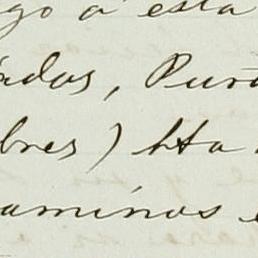 go a esta
ados, Pura
bres) hta
aminos e